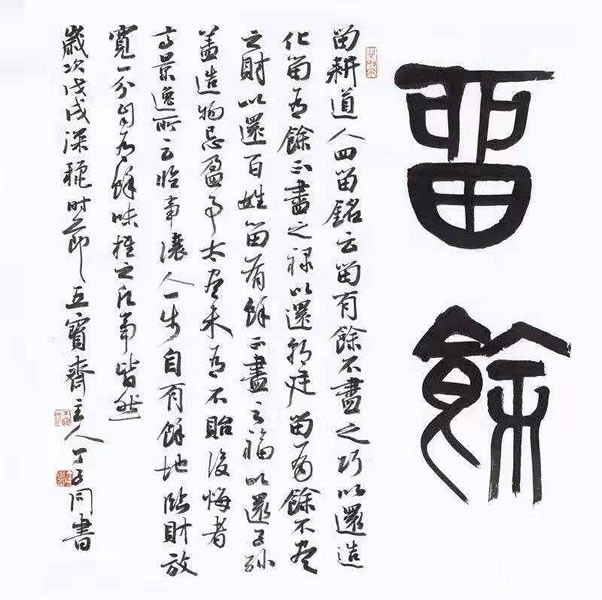 留餘
留耕道人四留銘云留有餘不盡之巧以還造
化留有餘不盡之祿以還朝廷留有餘不盡
之財以還百姓留有餘不盡之福以還子孫
蓋造物忌盈事太盡未有不貽後悔者
高景逸所云臨事讓人一步自有餘地臨財放
寬一分自有餘味推之凡事皆然
歲次戊戌深穐時節五寶齋主人丁子同書